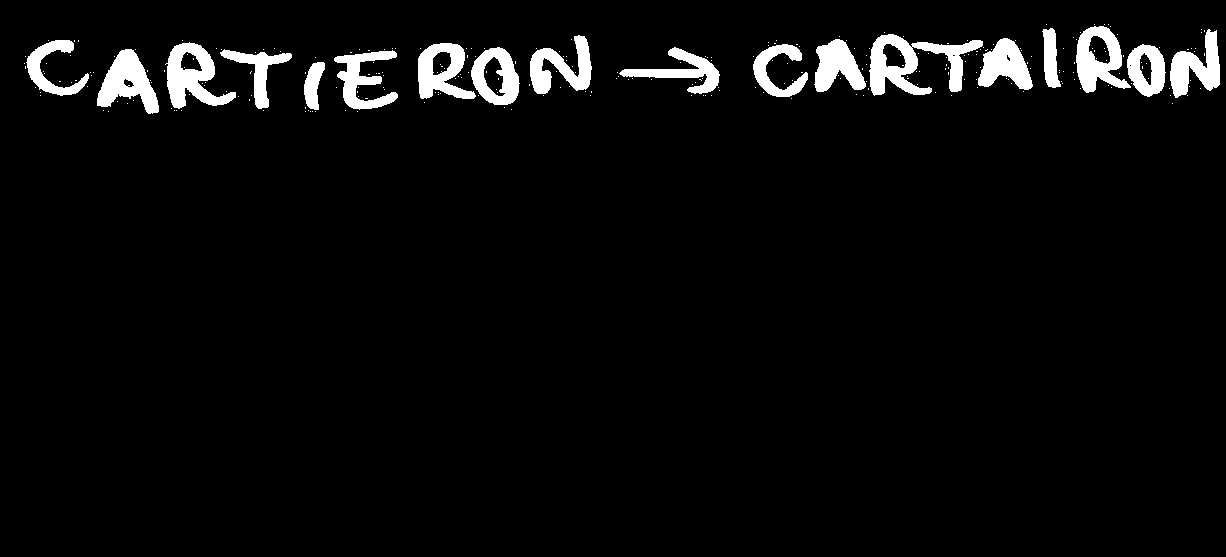 CARTIERON → CARTAIRON